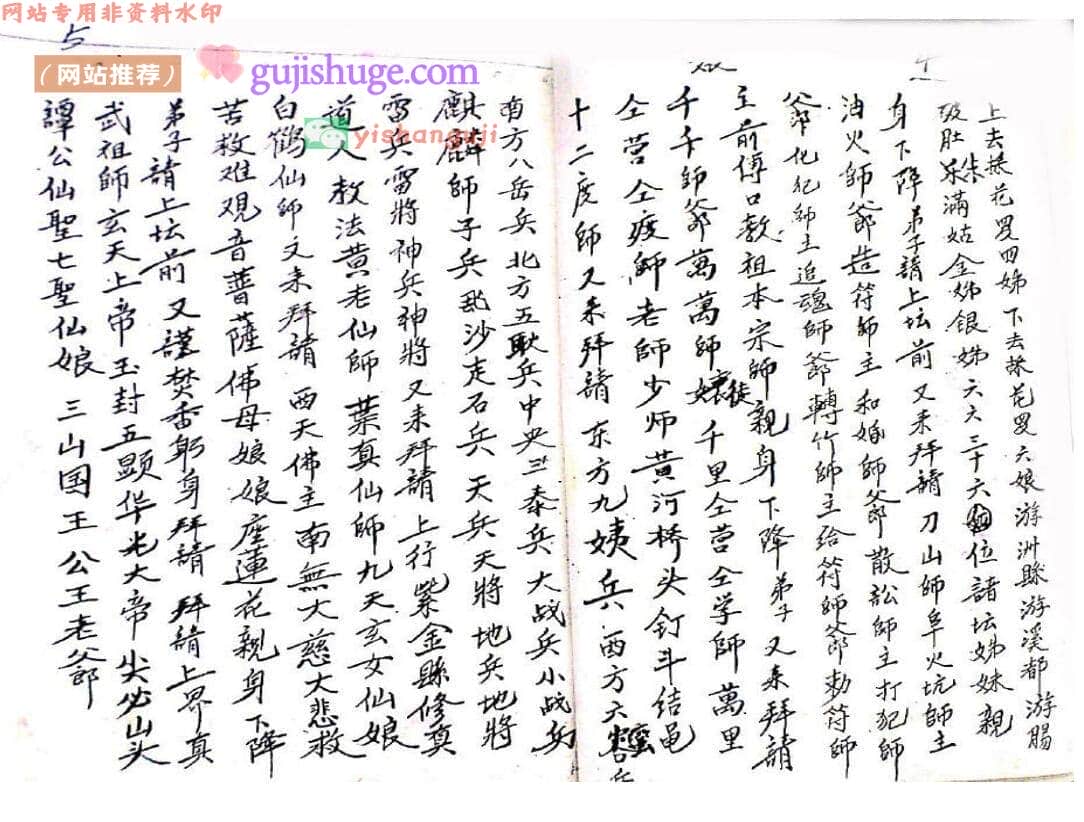 网站专用非资料水印
（网站推荐）
gujishuge.com
yishanguji
上去採花買四姊下去採花買六娘游洲縣游溪都游腸
朱
肚呆滿姑金姊銀姊六六三十六位諸坛姊妹親
身下降弟子請上坛前又来拜請刀山師阜火坑師主
油火師爺造符師主和婚師爺散訟師主打犯師
爺化犯師主追魂師爺轉竹師主给符師爺勅符師
主前傳口教祖本宗師親身下降弟子又来拜請
千千師爺萬萬師徒千里仝营仝学師萬里
仝营仝疫師老師少师黄河桥头钉斗结邑
十二度師又来拜請东方九姨兵西方六蛮兵
南方八岳兵北方五耿兵中央三泰兵大战兵小战兵
麒麟師子兵飛沙走石兵天兵天將地兵地將
雷兵雷將神兵神將又来拜請上行紫金縣修真
道人教法黄老仙師葉真仙師九天玄女仙娘
白鹤仙師又来拜請西天佛主南無大慈大悲救
苦救难观音菩薩佛母娘娘座蓮花親身下降
弟子請上坛前又謹焚香躬身拜請拜請上界真
武祖師玄天上帝玉封五顕华光大帝尖必山头
譚公仙聖七聖仙娘三山国王公王老爺